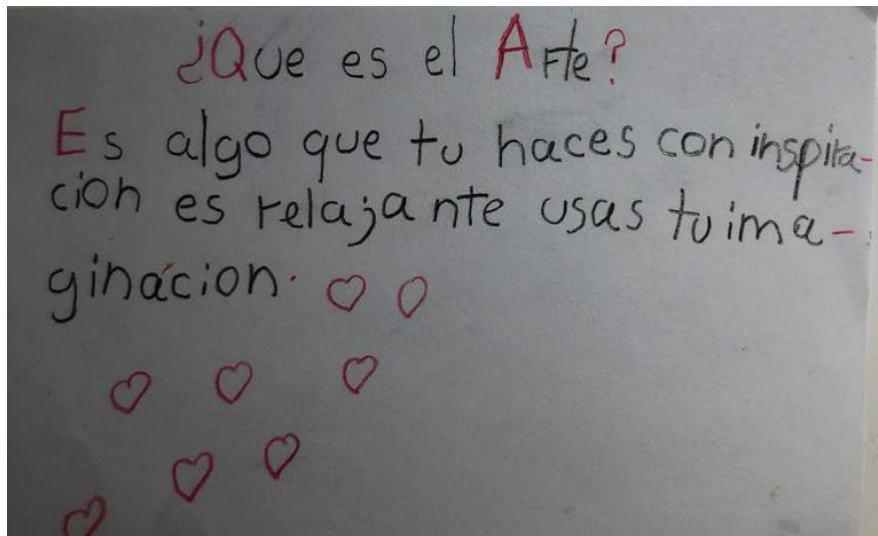 ¿Que es el Arte?
Es algo que tu haces con inspira-
cion es relajante usas tu ima-
ginácion.